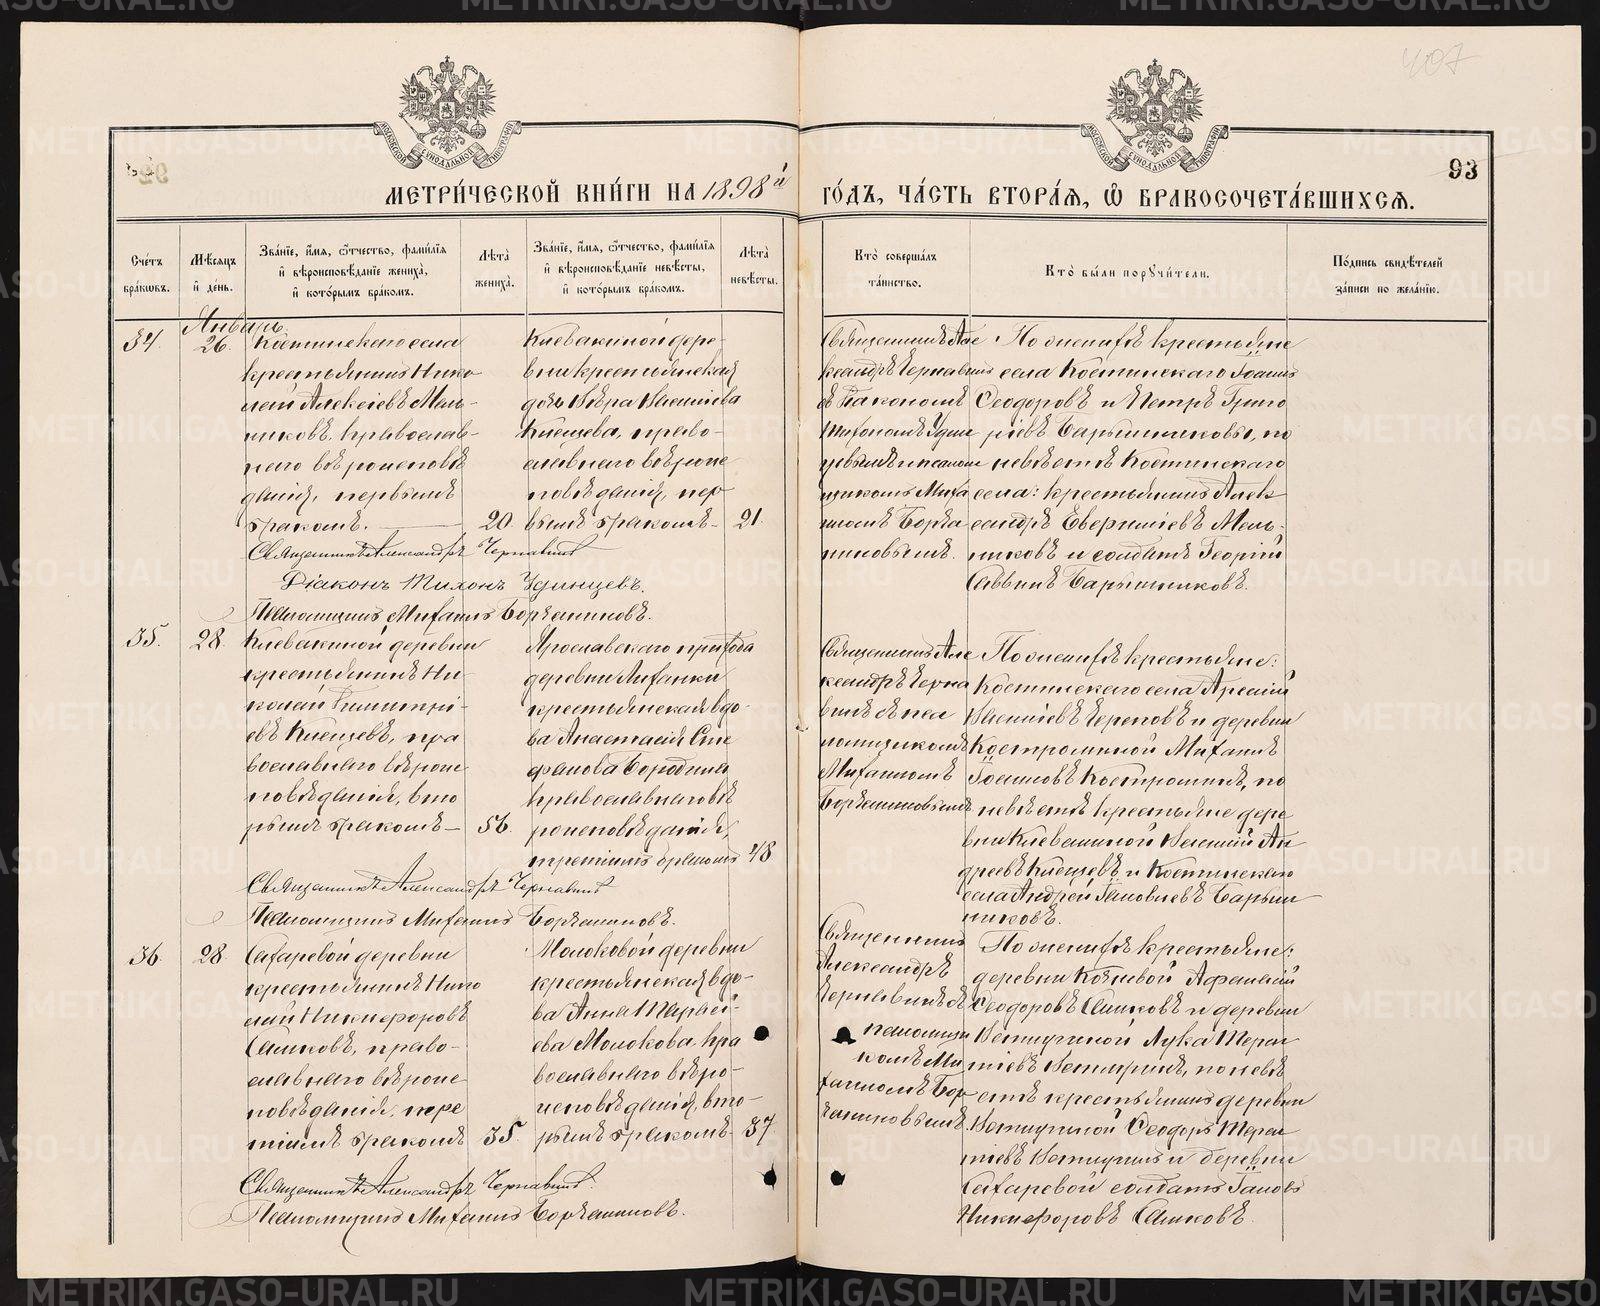 407
93
МЕТРИЧЕСКОЙ КНИГИ НА 1898й ГОДЪ, ЧАСТЬ ВТОРАЯ, Ѡ БРАКОСОЧЕТАВШИХСЯ.
Счетъ браковъ.
Мѣсяцъ и день.
Званіе, имя, отчество, фамилія
и вѣроисповѣданіе жениха,
и которымъ бракомъ.
Лѣта жениха.
Званіе, имя, отчество, фамилія
и вѣроисповѣданіе невѣсты,
и которымъ бракомъ.
Лѣта невѣсты.
Кто совершалъ
таинство.
Кто были поручители.
Подпись свидѣтелей
записи по желанію.
Январь.
34.
26.
Костинскаго села
крестьянинъ Нико
лай Алексіевъ Мель-
никовъ, православ-
наго вѣроисповѣ
данія, первымъ
бракомъ.
20.
Клевакиной дере-
вни крестьянская
дочь Вѣра
Клещева, право-
славнаго вѣроис
повѣданія, пер
вымъ бракомъ-
21.
Священникъ Але
ксандръ Чернавинъ
съ Діакономъ
Тихономъ Удин
цевымъ и псалом
щикомъ Миха
иломъ Боръа
ниновымъ.
По женихѣ крестьяне
села Костинскаго Іоаннъ
Ѳеодоровъ и Петръ Григо
ріевъ Барышниковы, по
невѣстѣ Костинскаго
села: крестьянинъ Алек
сандръ Мель-
никовъ и солдатъ Георгій
Саввинъ Барышниковъ.
Священникъ Александръ Чернавинъ
Діаконъ Тихонъ Удинцевъ.
Псаломщикъ Михаилъ
35.
28.
Клевакиной деревни
крестьянинъ Ни-
колай Димитрі-
евъ Клещевъ, пра
вославнаго вѣроис
повѣданія, вто
рымъ бракомъ-
56.
Ярославскаго прихода
деревни
крестьянская вдо-
ва Анастасія Сте
фанова Бородина
православнаго вѣ
роисповѣданія,
третьимъ бракомъ
48
Священникъ Але
ксандръ Черна
винъ съ пса
ломщикомъ
Михаиломъ
По женихѣ крестьяне:
Костинскаго села Арсеній
Череповъ и деревни
Костроминой Михаилъ
Іоанновъ Костроминъ, по
невѣстѣ крестьяне дере
вни Клевакиной Василій Ан
дреевъ Клещевъ и Костинскаго
села Андрей Барыш
никовъ.
Священникъ Александръ Чернавинъ
Псаломщикъ Михаилъ
36.
28.
Сохаревой деревни
крестьянинъ Нико
лай Никифоровъ
Сошковъ, право-
славнаго вѣроис
повѣданія, тре
тіимъ бракомъ
35.
Молоковой деревни
крестьянская вдо-
ва Анна
Молокова пра
вославнаго вѣро-
исповѣданія, вто-
рымъ бракомъ-
37
Священникъ
Александръ
Чернавинъ съ
псаломщи
комъ Ми
хаиломъ
По женихѣ крестьяне:
деревни Аѳанасій
Ѳеодоровъ Сошковъ и деревни
Лука Терен
тіевъ по невѣ
стѣ крестьянинъ деревни
Ѳеодоръ Терен
тіевъ и деревни
Сохаревой солдатъ Іаковъ
Никифоровъ Сошковъ.
Священникъ Александръ Чернавинъ.
Псаломщикъ Михаилъ